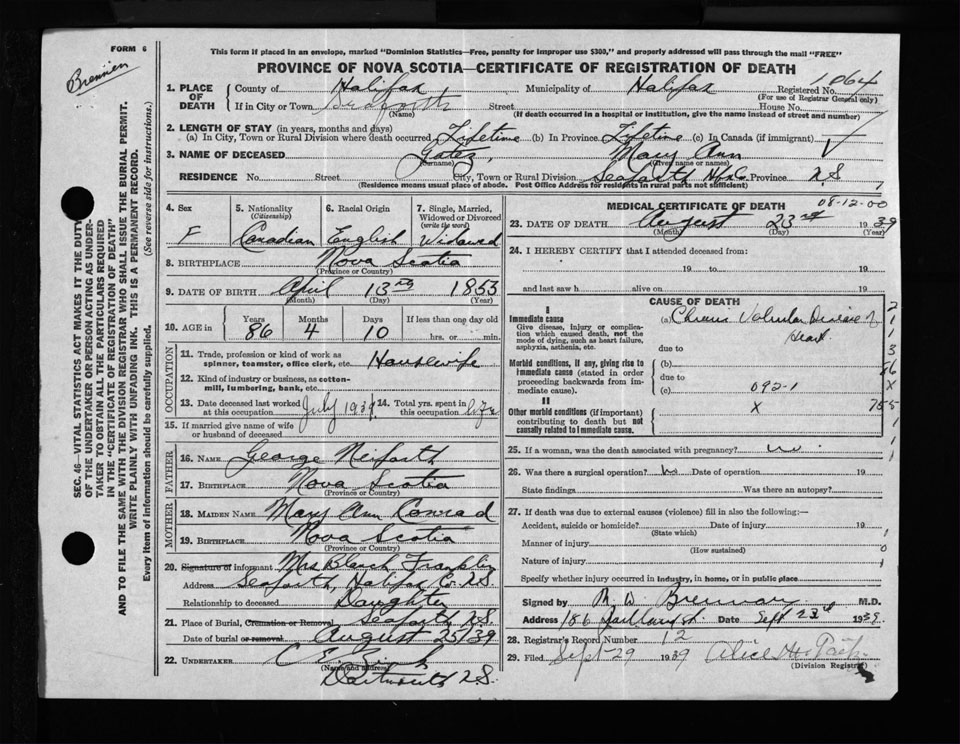 FORM 6
Brennen
This form if placed in an envelope, marked "Dominion Statistics—Free, penalty for improper use $300," and properly addressed will pass through the mail "FREE"
PROVINCE OF NOVA SCOTIA—CERTIFICATE OF REGISTRATION OF DEATH
1. PLACE OF DEATH
County of Halifax Municipality of Halifax Registered No. 1064
(For use of Registrar General only)
If in City or Town Seaforth Street House No.
(Name) (If death occurred in a hospital or institution, give the name instead of street and number)
2. LENGTH OF STAY (in years, months and days)
(a) In City, Town or Rural Division where death occurred Lifetime (b) In Province Lifetime (c) In Canada (if immigrant)
3. NAME OF DECEASED Gates, Mary Ann
(Surname) (Given name or names)
RESIDENCE No. Street City, Town or Rural Division Seaforth Hfx Co. Province N.S.
(Residence means usual place of abode. Post Office Address for residents in rural parts not sufficient)
4. Sex F
5. Nationality (Citizenship) Canadian
6. Racial Origin English
7. Single, Married, Widowed or Divorced (write the word) Widowed
8. BIRTHPLACE Nova Scotia
(Province or Country)
9. DATE OF BIRTH April 13th 1853
(Month) (Day) (Year)
10. AGE in Years 86 Months 4 Days 10 If less than one day old hrs. or min.
OCCUPATION
11. Trade, profession or kind of work as spinner, teamster, office clerk, etc. Housewife
12. Kind of industry or business, as cotton-mill, lumbering, bank, etc.
13. Date deceased last worked at this occupation July 1939
14. Total yrs. spent in this occupation life
15. If married give name of wife or husband of deceased
FATHER
16. NAME George Neiforth
17. BIRTHPLACE Nova Scotia
(Province or Country)
MOTHER
18. MAIDEN NAME Mary Ann Conrad
19. BIRTHPLACE Nova Scotia
(Province or Country)
20. Signature of informant Mrs Blanch Franklin
Address Seaforth, Halifax Co. N.S.
Relationship to deceased Daughter
21. Place of Burial, Cremation or Removal Seaforth N.S.
Date of burial or removal August 25/39
22. UNDERTAKER
(Name and address)
Dartmouth N.S.
MEDICAL CERTIFICATE OF DEATH
08-12-00
23. DATE OF DEATH August 23rd 1939
(Month) (Day) (Year)
24. I HEREBY CERTIFY that I attended deceased from:
19 to 19
and last saw h alive on 19
CAUSE OF DEATH
I
Immediate cause
Give disease, injury or complication which caused death, not the mode of dying, such as heart failure, asphyxia, asthenia, etc.
(a) Chronic Valvular Disease of Heart
due to
Morbid conditions, if any, giving rise to immediate cause (stated in order proceeding backwards from immediate cause).
(b)
due to
(c) 092-1
II
Other morbid conditions (if important) contributing to death but not causally related to immediate cause.
X
25. If a woman, was the death associated with pregnancy? no
26. Was there a surgical operation? no Date of operation 19
State findings Was there an autopsy?
27. If death was due to external causes (violence) fill in also the following:—
Accident, suicide or homicide? Date of injury 19
(State which)
Manner of injury
(How sustained)
Nature of injury
Specify whether injury occurred in industry, in home, or in public place
Signed by Brennan M.D.
Address 186 Date Sept 23d 1939.
28. Registrar's Record Number 12
29. Filed Sept-29 1939 Alice
(Division Registrar)
SEC. 46—VITAL STATISTICS ACT MAKES IT THE DUTY
OF THE UNDERTAKER OR PERSON ACTING AS UNDER-
TAKER TO OBTAIN ALL THE PARTICULARS REQUIRED
IN THE "CERTIFICATE OF REGISTRATION OF DEATH"
AND TO FILE THE SAME WITH THE DIVISION REGISTRAR WHO SHALL ISSUE THE BURIAL PERMIT.
WRITE PLAINLY WITH UNFADING INK. THIS IS A PERMANENT RECORD.
Every item of information should be carefully supplied. (See reverse side for instructions.)